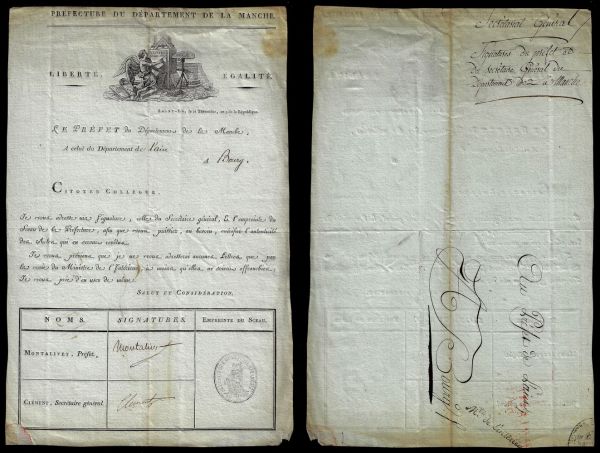 PREFECTURE DU DÉPARTEMENT DE LA MANCHE.
LIBERTÉ,
EGALITÉ.
LE PRÉFET du Département de la Manche,
A celui du Département de l'ain
A Bourg.
CITOYEN COLLÈGUE,
Je vous adresse ma Signature, celle du Secrétaire général, & l'empreinte du
Sceau de la Préfecture, afin que vous puissiez, au besoin, vérifier l'authenticité
des Actes qui en seront revêtus.
Je vous préviens que je ne vous adresserai aucune Lettres, que par
la voie du Ministre de l'Intérieur, à moins qu'elles ne soient affranchies.
Je vous prie d'en user de même.
SALUT ET CONSIDÉRATION,
NOMS.
SIGNATURES.
EMPREINTE DU SCEAU.
MONTALIVET, Préfet.
Montalivet
CLÉMENT, Secrétaire général
Clément
Secrétariat Général
Signatures du préfet &
du secrétaire Général du
Département de la Manche
Au Préfet de l'ain
A Bourg